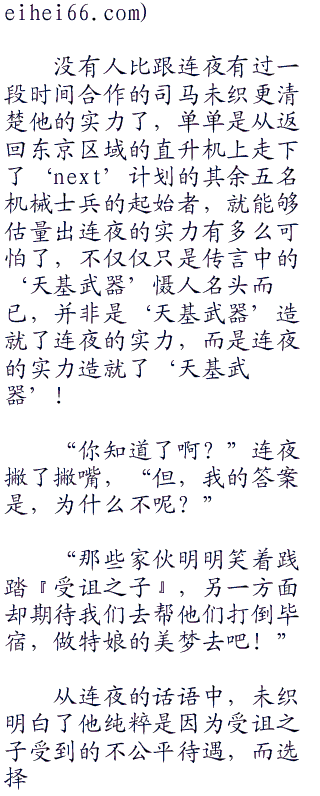 eihei66.com)
没有人比跟连夜有过一
段时间合作的司马未织更清
楚他的实力了，单单是从返
回东京区域的直升机上走下
了‘next’计划的其余五名
机械士兵的起始者，就能够
估量出连夜的实力有多么可
怕了，不仅仅只是传言中的
‘天基武器’慑人名头而
已，并非是‘天基武器’造
就了连夜的实力，而是连夜
的实力造就了‘天基武
器’！
“你知道了啊？”连夜
撇了撇嘴，“但，我的答案
是，为什么不呢？”
“那些家伙明明笑着践
踏『受诅之子』，另一方面
却期待我们去帮他们打倒毕
宿，做特娘的美梦去吧！”
从连夜的话语中，未织
明白了他纯粹是因为受诅之
子受到的不公平待遇，而选
择